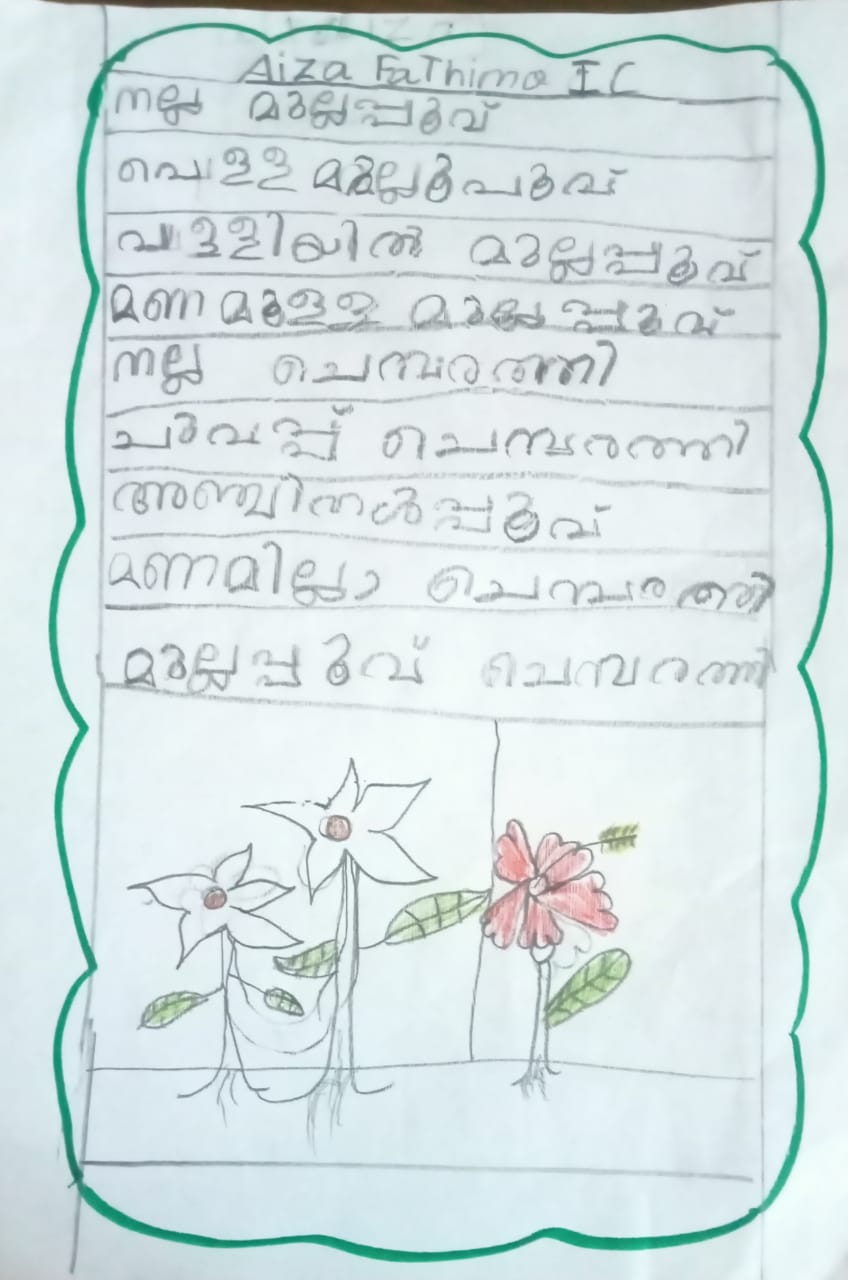 Aiza FaThima I C
നല്ല മുല്ലപ്പൂവ്
വെള്ള മുല്ലപൂവ്
വള്ളിയിൽ മുല്ലപ്പൂവ്
മണമുള്ള മുല്ലപ്പൂവ്
നല്ല ചെമ്പരത്തി
ചുവപ്പ് ചെമ്പരത്തി
അഞ്ചിതൾപ്പൂവ്
മണമില്ലാ ചെമ്പരത്തി
മുല്ലപ്പൂവ് ചെമ്പരത്തി